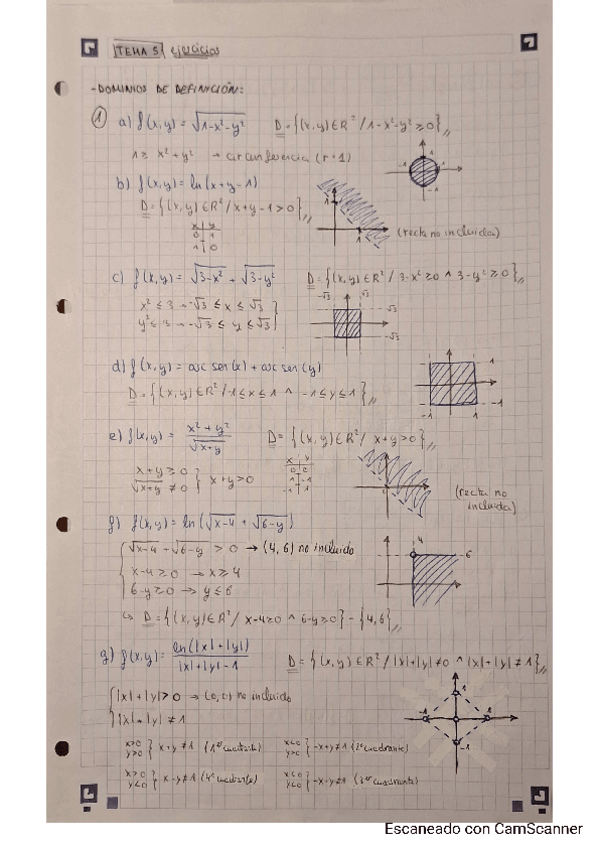 TEMA 5 ejercicios
- DOMINIOS DE DEFINICIÓN:
① a) f(x,y) = √(1-x²-y²) D = {(x,y) ∈ R² / 1-x²-y² ≥ 0}
1 ≥ x² + y² → circunferencia (r=1)
-1 1 1 -1
b) f(x,y) = ln(x+y-1)
D = {(x,y) ∈ R² / x+y-1 > 0}
x y
0 1
1 0
1 1 (recta no incluida)
c) f(x,y) = √(3-x²) + √(3-y²) D = {(x,y) ∈ R² / 3-x² ≥ 0 ∧ 3-y² ≥ 0}
x² ≤ 3 → -√3 ≤ x ≤ √3
y² ≤ 3 → -√3 ≤ y ≤ √3
-√3 √3 -√3 -√3
d) f(x,y) = arc sen(x) + arc sen(y)
D = {(x,y) ∈ R² / -1 ≤ x ≤ 1 ∧ -1 ≤ y ≤ 1}
1 -1 -1 1
e) f(x,y) = (x² + y²)/√(x+y) D = {(x,y) ∈ R² / x+y > 0}
x+y ≥ 0
√(x+y) ≠ 0 } x+y > 0
x y
0 0
(recta no incluida)
f) f(x,y) = ln(√(x-4) + √(6-y))
√(x-4) + √(6-y) > 0 → (4,6) no incluido
x-4 ≥ 0 → x ≥ 4
6-y ≥ 0 → y ≤ 6
4 6
↳ D = {(x,y) ∈ R² / x-4 ≥ 0 ∧ 6-y ≥ 0} - {4,6}
g) f(x,y) = ln(|x|+|y|)/(|x|+|y|-1) D = {(x,y) ∈ R² / |x|+|y| ≠ 0 ∧ |x|+|y| ≠ 1}
|x|+|y| > 0 → (0,0) no incluido
|x|+|y| ≠ 1
1 -1 1 -1
x>0 y>0 } x+y ≠ 1 (1er cuadrante) x<0 y>0 } -x+y ≠ 1 (2º cuadrante)
x>0 y<0 } x-y ≠ 1 (4º cuadrante) x<0 y<0 } -x-y ≠ 1 (3er cuadrante)
Escaneado con CamScanner